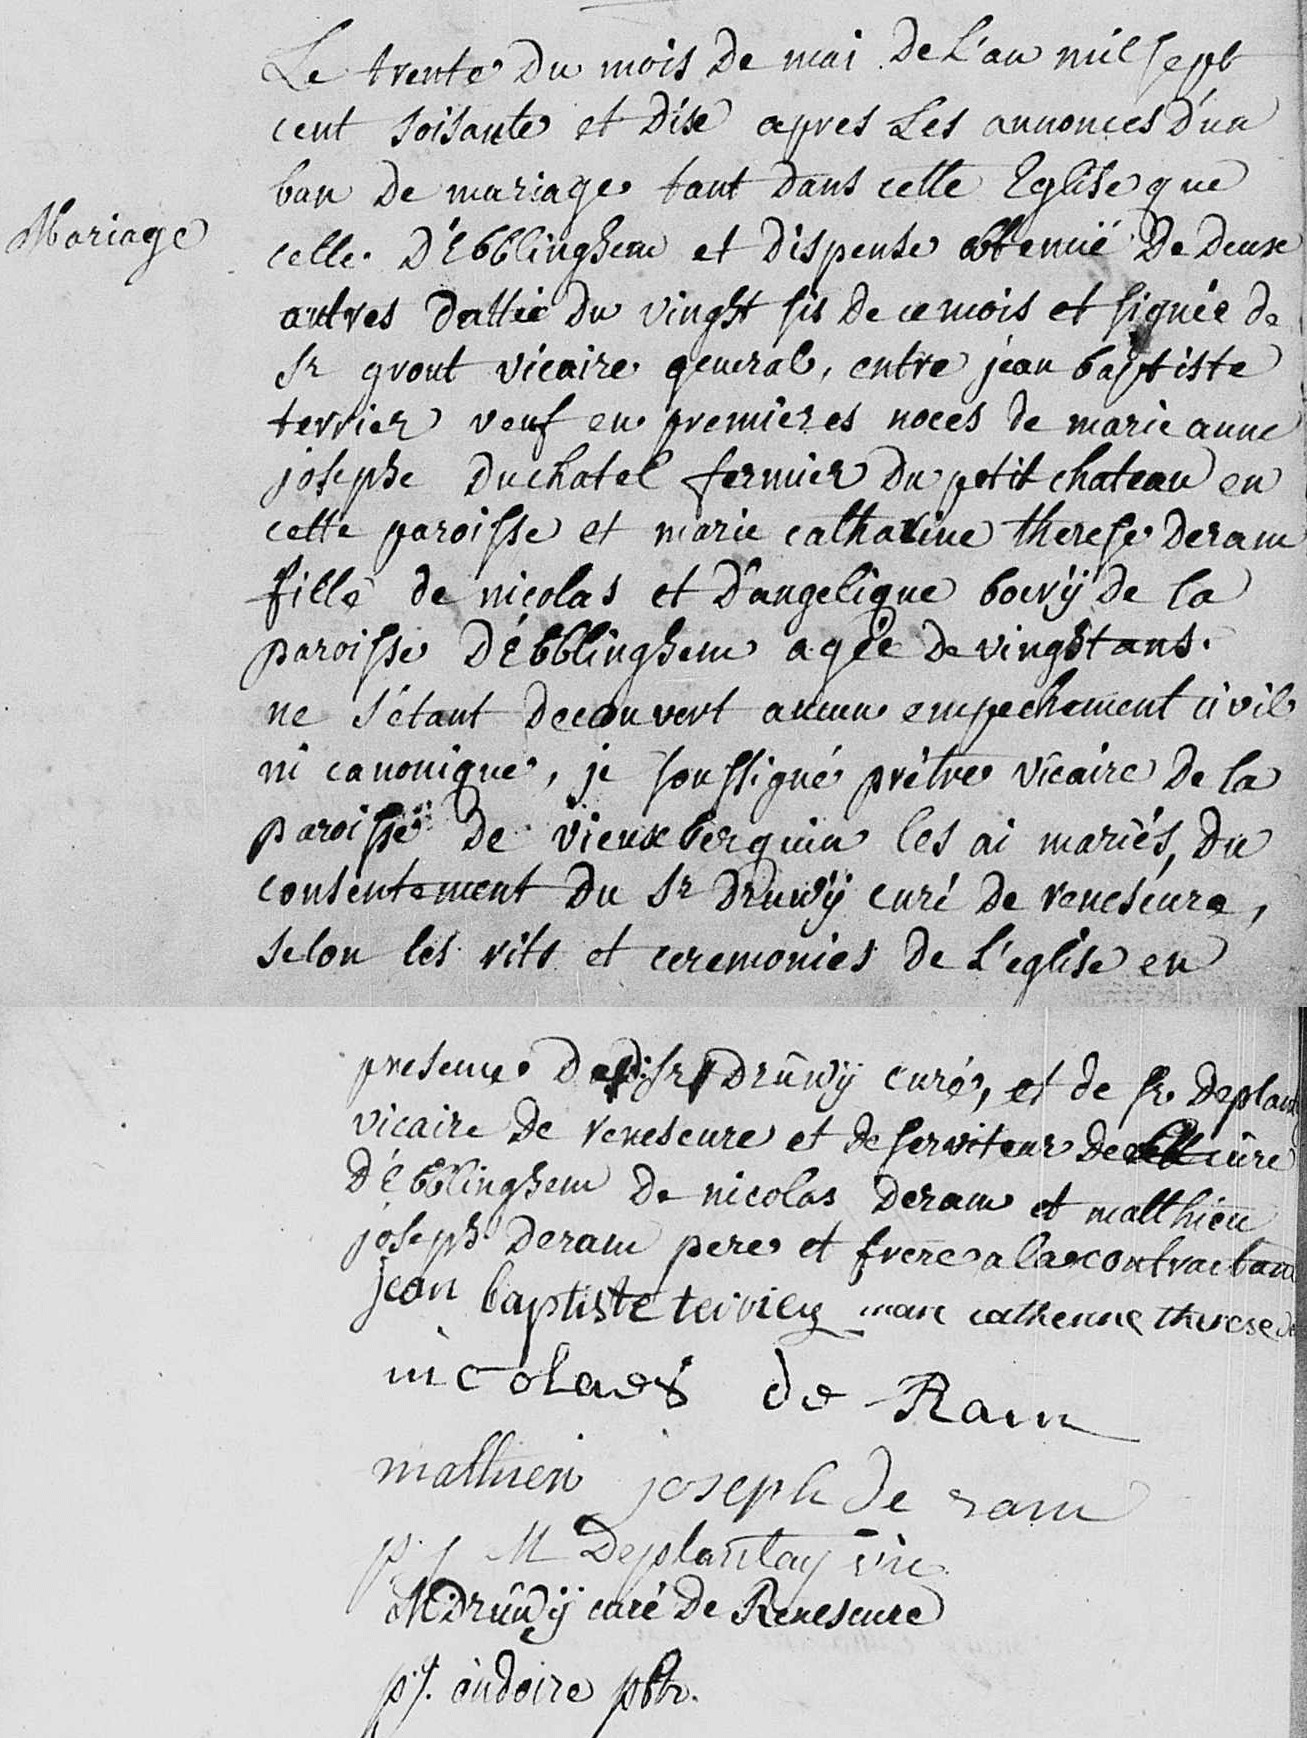 Le trente du mois de mai de L'an mil sept
cent soisante et dise apres Les annonces d'un
ban de mariage tant dans cette Eglise que
Mariage
celle D'Ebblinghem et dispense obtenuë De deux
autres dattée du vinght sis de ce mois et signée de
sr grout vicaire general, entre jean baptiste
terrier veuf en premieres noces de marie anne
josephe duchatel fermier du petit chateau en
cette paroisse et marie catharine therese deram
fille de nicolas et d'angelique bovÿ de la
paroisse D'Ebblinghem agée de vinght ans.
ne s'étant decouvert aucun empechement civil
ni canonique, je soussigné prêtre vicaire de la
paroisse de vieuxberquin les ai mariés, du
consentement du sr druwÿ curé de reneseure,
selon les rits et ceremonies de L'eglise en
presence du sr Drûwÿ curé, et de sr. Deplan
vicaire de reneseure et deserviteur de cure
D'Ebblinghem de nicolas deram et matthieu
joseph deram pere et frere a la contractan
jean baptiste terrier marie catherine therese de
nicolaes de Ram
mathieu joseph de ram
p. j M Deplantay vic
M Drûwÿ curé de Reneseure
p.j. oudoire pbtr.